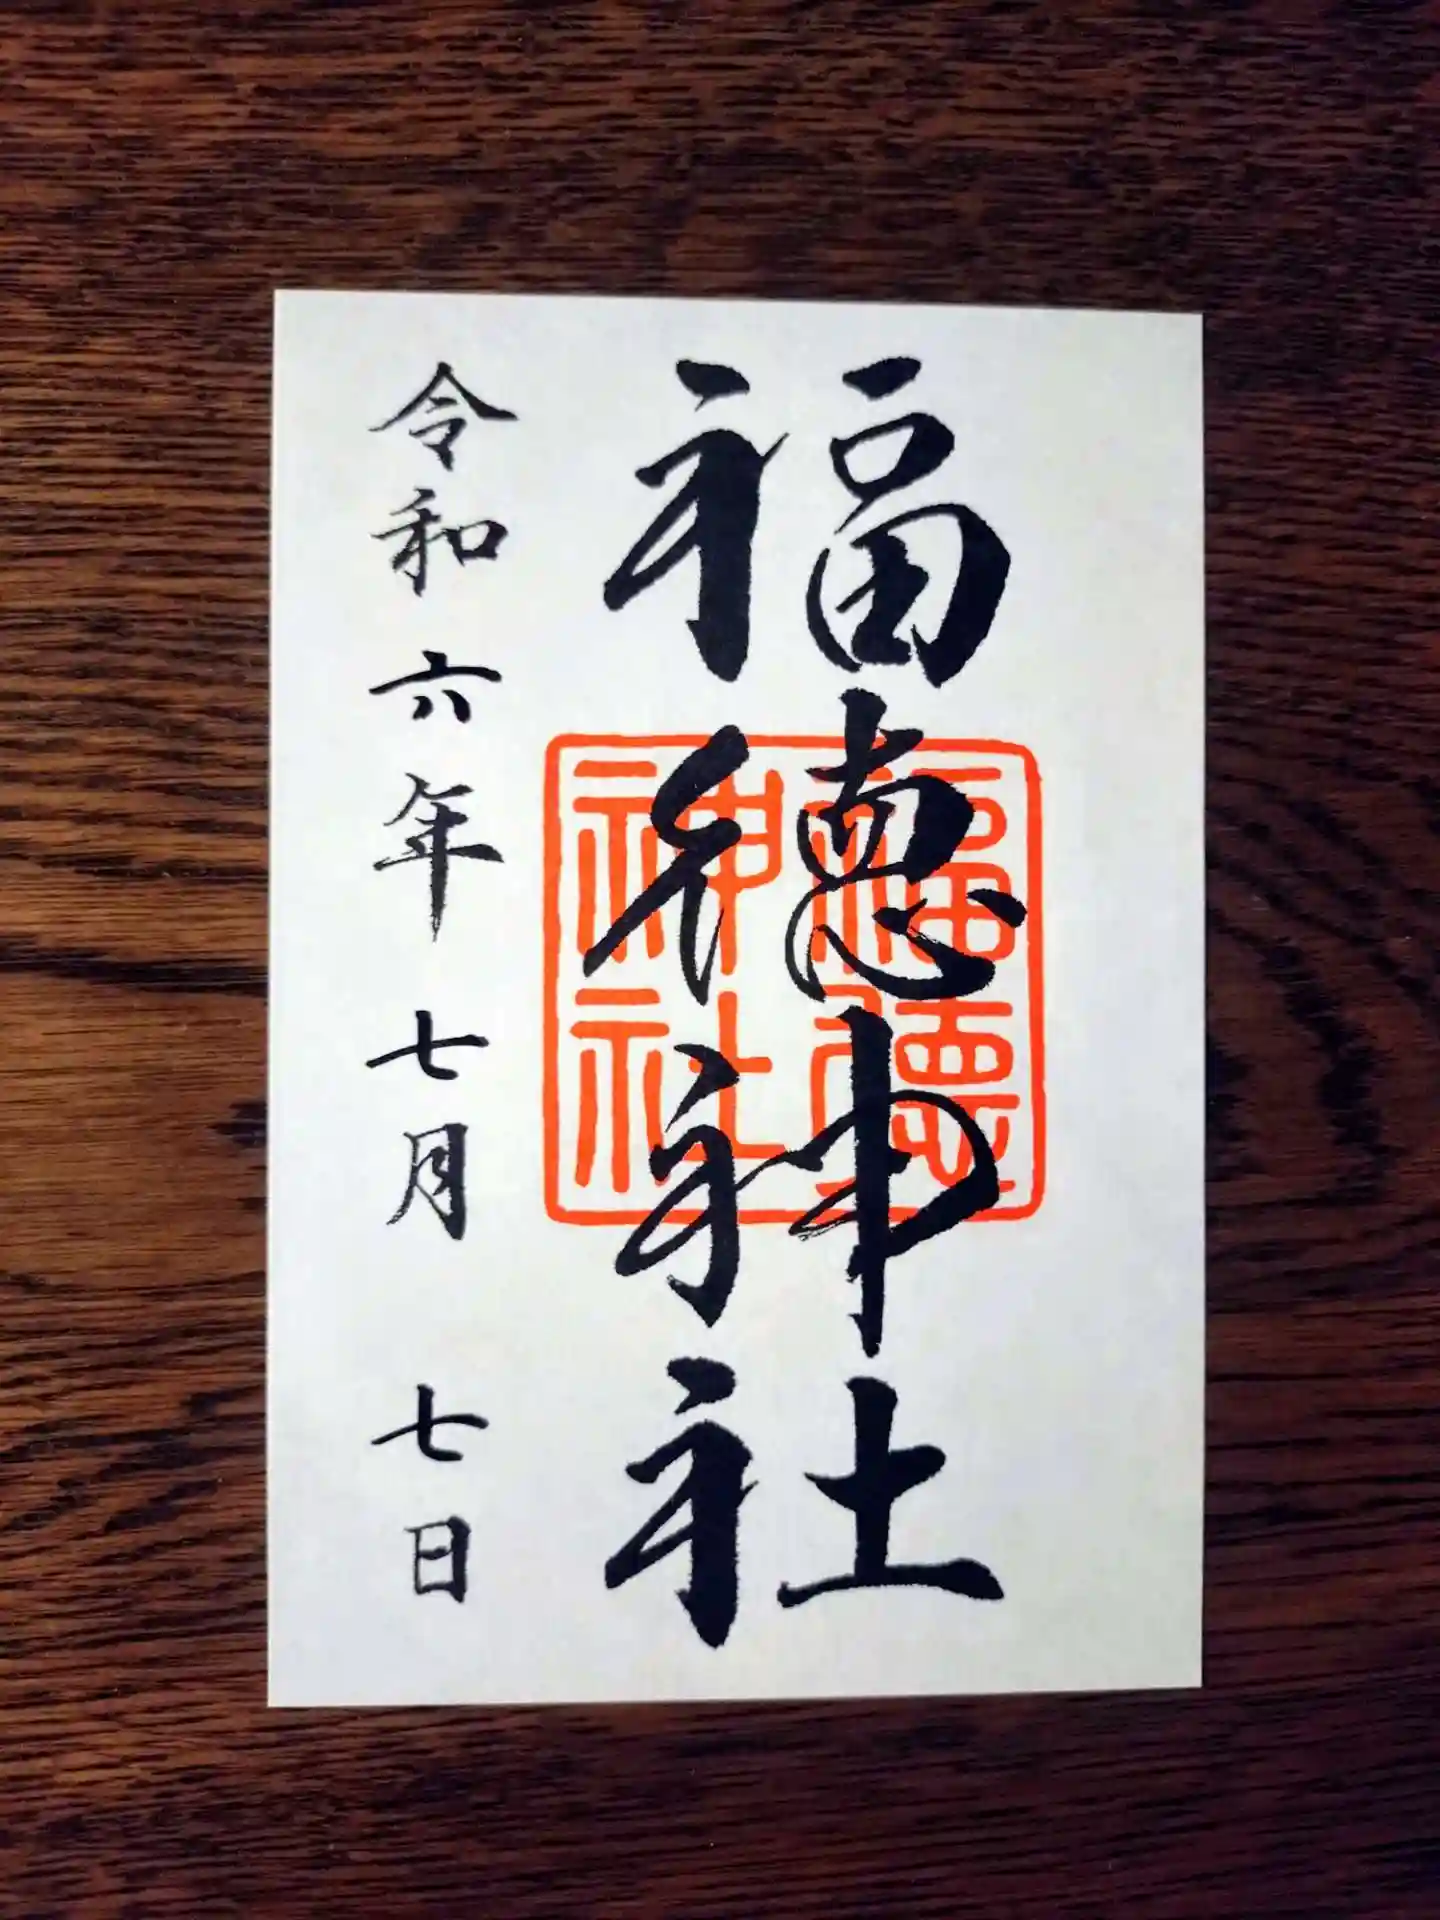 福徳神社
福徳神社
令和六年七月七日